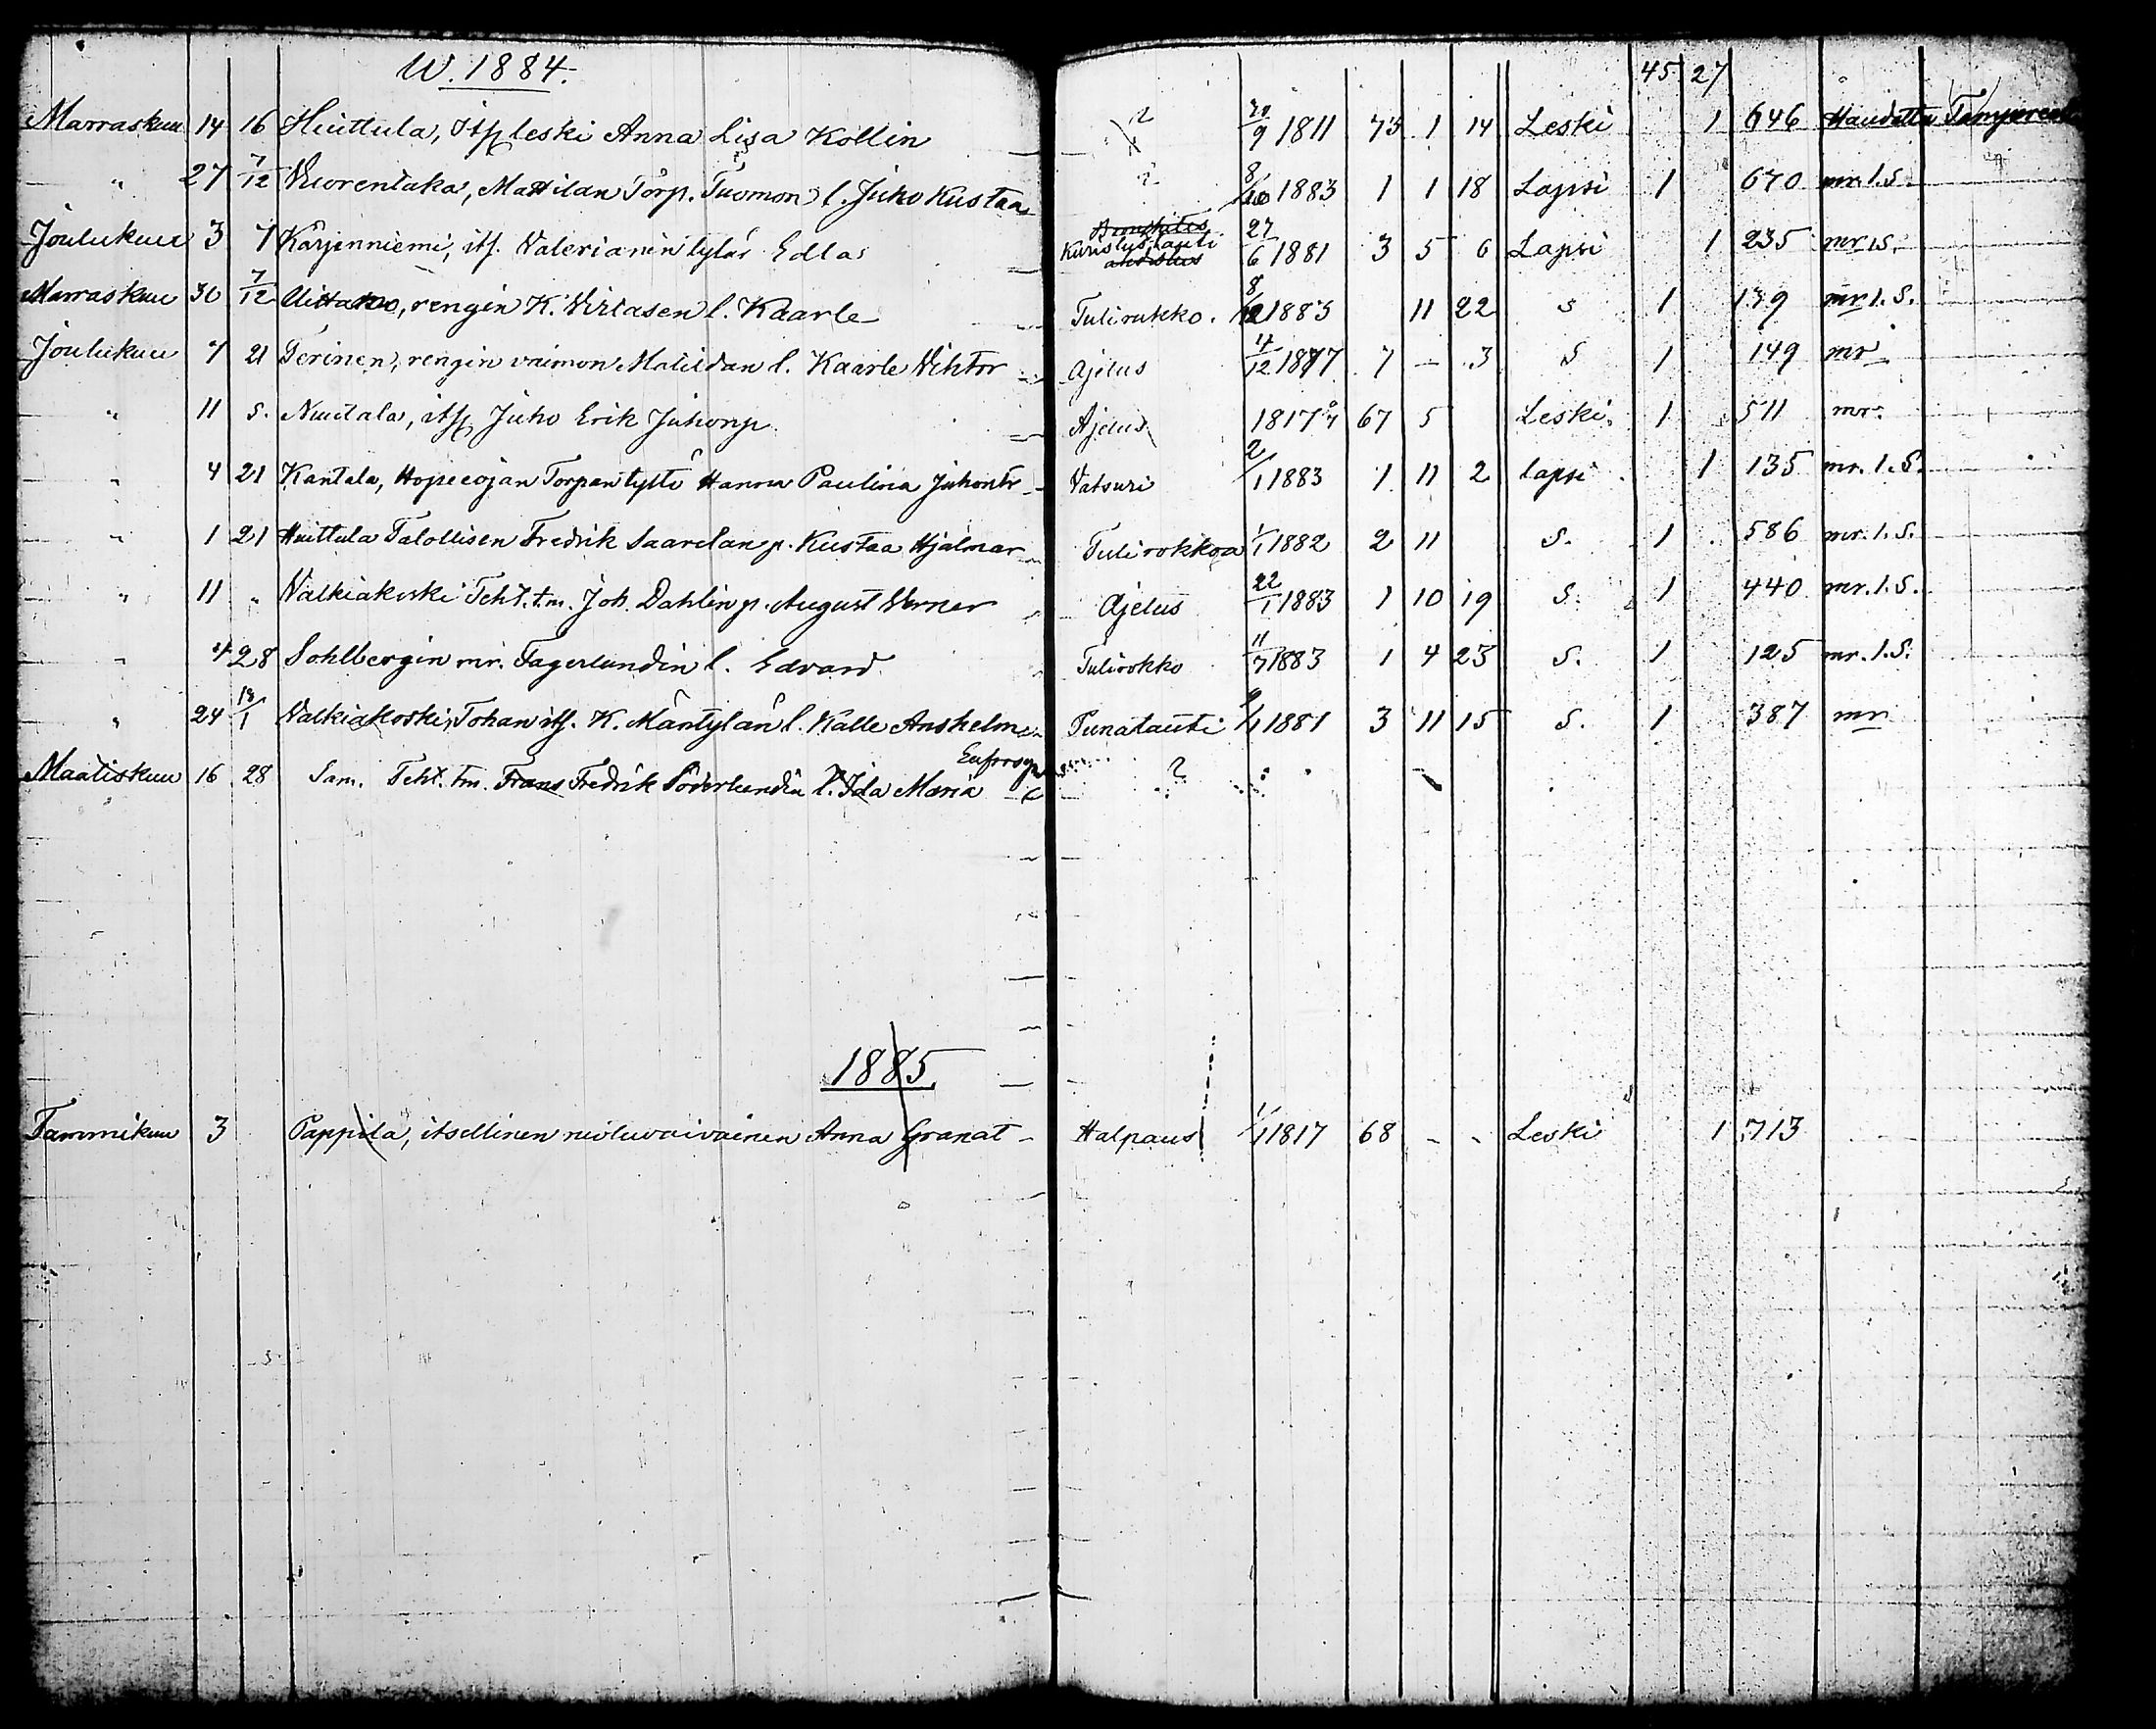 W. 1884.
45 27
Marraskuu 14 16 Huittula, Itsp leski Anna Lisa Kollin ? 30/9 1811 73 1 14 Leski 1 646 Haudattu Tampereella
" 27 7/12 Vuorentaka, Mattilan Torp. Tuomon l. Juho Kustaa ? 8/10 1883 1 1 18 Lapsi 1 670 mr. l.S.
Joulukuu 3 7 Kärjenniemi, its. Valerianin tytär Edla Kuristustauti 27/6 1881 3 5 6 Lapsi 1 235 mr l.S.
Marraskuu 30 7/12 Uittamo, rengin K. Virtasen l. Kaarle Tulirukko. 8/12 1883 11 22 s 1 139 mr l.S.
Joulukuu 7 21 Terinen, rengin vaimon Matildan l. Kaarle Vihtor Ajetus 4/12 1877 7 – 3 S 1 149 mr
" 11 s. Nuutala, itsp Juho Erik Juhonp. Ajetus 1817 67 5 Leski. 1 511 mr.
" 4 21 Kantala, Hopeeojan Torpan tyttö Hanna Paulina Juhontr Vatsuri 2/1 1883 1 11 2 lapsi 1 135 mr. l.S.
" 1 21 Huittula Talollisen Fredrik Saarelan p. Kustaa Hjalmar Tulirokkoa 1/1 1882 2 11 S. 1 586 mr. l.S.
" 11 " Valkiakoski Teht. t.m. Joh. Dahlin p. August Verner Ajetus 22/1 1883 1 10 19 S. 1 440 mr. l.S.
" 4 28 Sohlbergin mr. Fagerlundin l. Edvard Tulirokko 11/7 1883 1 4 23 S. 1 125 mr. l.S.
" 24 18/1 Valkiakoski, Tohan its. K. Mäntylän l. Kalle Anshelm Punatauti 9/1 1881 3 11 15 S. 1 387 mr
Maaliskuu 16 28 Sam. Teht. tm. Frans Fredrik Söderlundin l. Ida Maria ?
1885.
Tammikuu 3 Pappila, itsellinen ruoluvaivainen Anna Granat Halpaus 1/1 1817 68 - - Leski 1 713